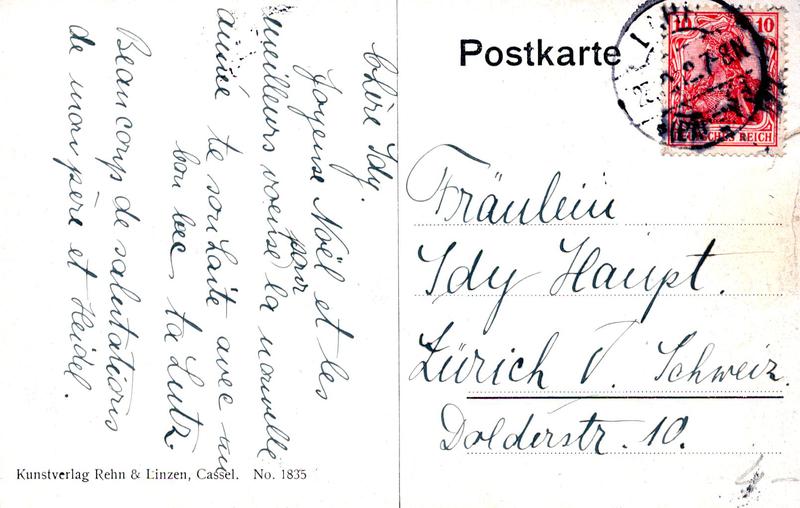 Postkarte
10 10
DEUTSCHES REICH
Chère Idy.
Joyeuse Noël et les
meilleurs voeuse pour la nouvelle
année te souhaite avec un
bon bec, ta Lutz.
Beaucorps de salutations
de mon père et Heidel.
Fräulein
Idy Haupt.
Zürich V. Schweiz.
Dolderstr. 10.
Kunstverlag Rehn & Linzen, Cassel. No. 1835